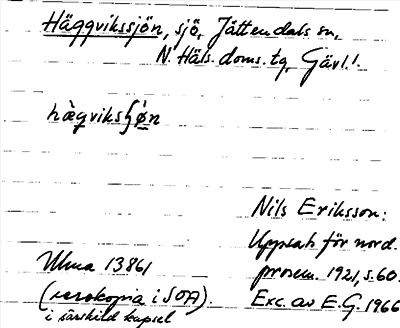 Häggvikssjön, sjö, Jättendals sn,
N. Häls. doms. tg, Gävl. l.
hàgviksʃǿn
Nils Eriksson:
Uppsats för nord.
prosem. 1921, s. 60.
Exc. av E.G. 1966
Ulma 13861
(xerokopia i SOA).
i särskild kapsel